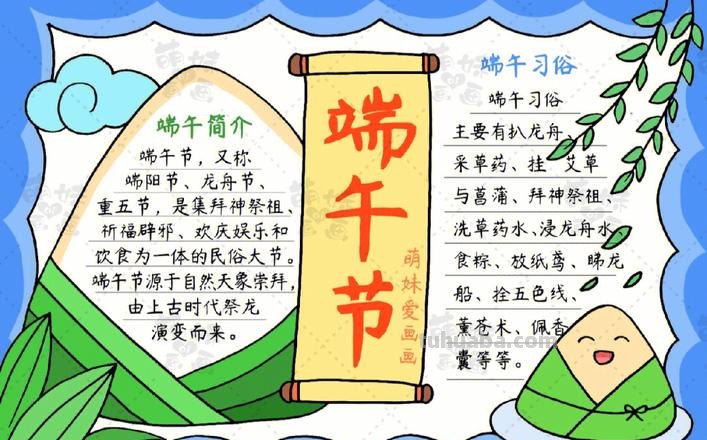 端午简介
端午节，又称
端阳节、龙舟节、
重五节，是集拜神祭祖、
祈福辟邪、欢庆娱乐和
饮食为一体的民俗大节。
端午节源于自然天象崇拜，
由上古时代祭龙
演变而来。
端午节
萌妹爱画画
端午习俗
端午习俗
主要有扒龙舟、
采草药、挂 艾草
与菖蒲、拜神祭祖、
洗草药水、浸龙舟水、
食粽、放纸鸢、睇龙
船、拴五色线、
薰苍术、佩香
囊等等。